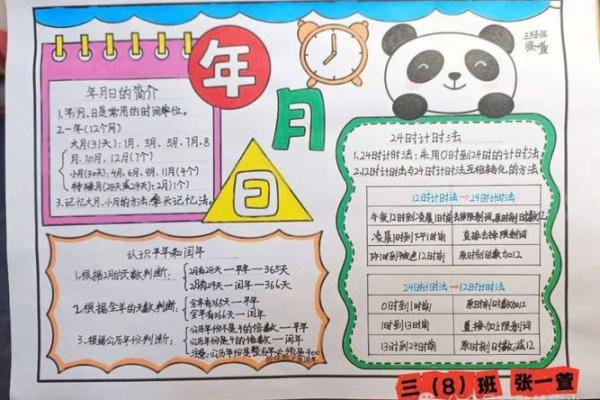 年
月
日
三8班
张一萱
年月日的简介
1.年、月、日是常用的时间单位。
2.一年(12个月)
大月(31天):1月、3月、5月、7月、8
月、10月、12月(7个)
小月(30天):4月、6月、9月、11月(4个)
特殊月(28天或29天):2月(1个)
3.记忆大月、小月的方法:拳头记忆法。
认识平年和闰年
1.根据2月的天数判断:
2月有28天—平年—365天
2月有29天—闰年—366天
2.根据全年的天数判断:
全年有365天—平年
全年有366天—闰年
3.根据公历年份判断:
公历年份不是4的倍数—平年
公历年份是4的倍数—闰年
注意:公历年份是整百年
24时计时法
1.24时计时法:采用0时到24时的计时法。
2.12时计时法与24时计时法互相转化的方法。
12时计时法→24时计时法
午夜12时到凌晨1时前 去掉限制词,原时刻时数减12
凌晨1时到下午1时前 直接去掉限制词
下午1时到晚上12时前 原时刻时数加12
24时计时法→12时计时法
0时到1时前 原时刻时数加12
1时到13时前 直接加上限制词
13时到24时前 原时刻时数减12
三(8)班 张一萱